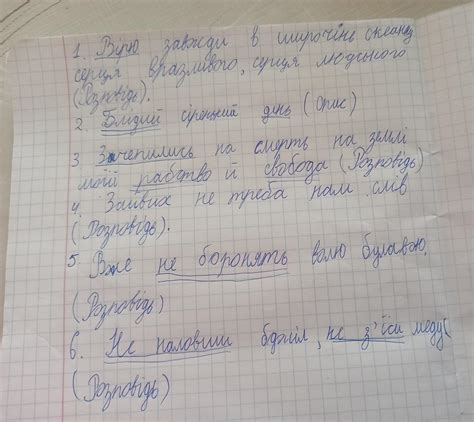 1. Вірю завжди в широчінь океану
серця вразливого, серця людського
(Розповідь).
2. Блідий сіренький день (Опис)
3. Зчепились на смерть на землі
моїй рабство й свобода (Розповідь)
4. Зайвих не треба нам слів
(Розповідь).
5. Вже не боронять волю булавою.
(Розповідь)
6. Не наловиш бджіл, не з'їси меду(
(Розповідь)